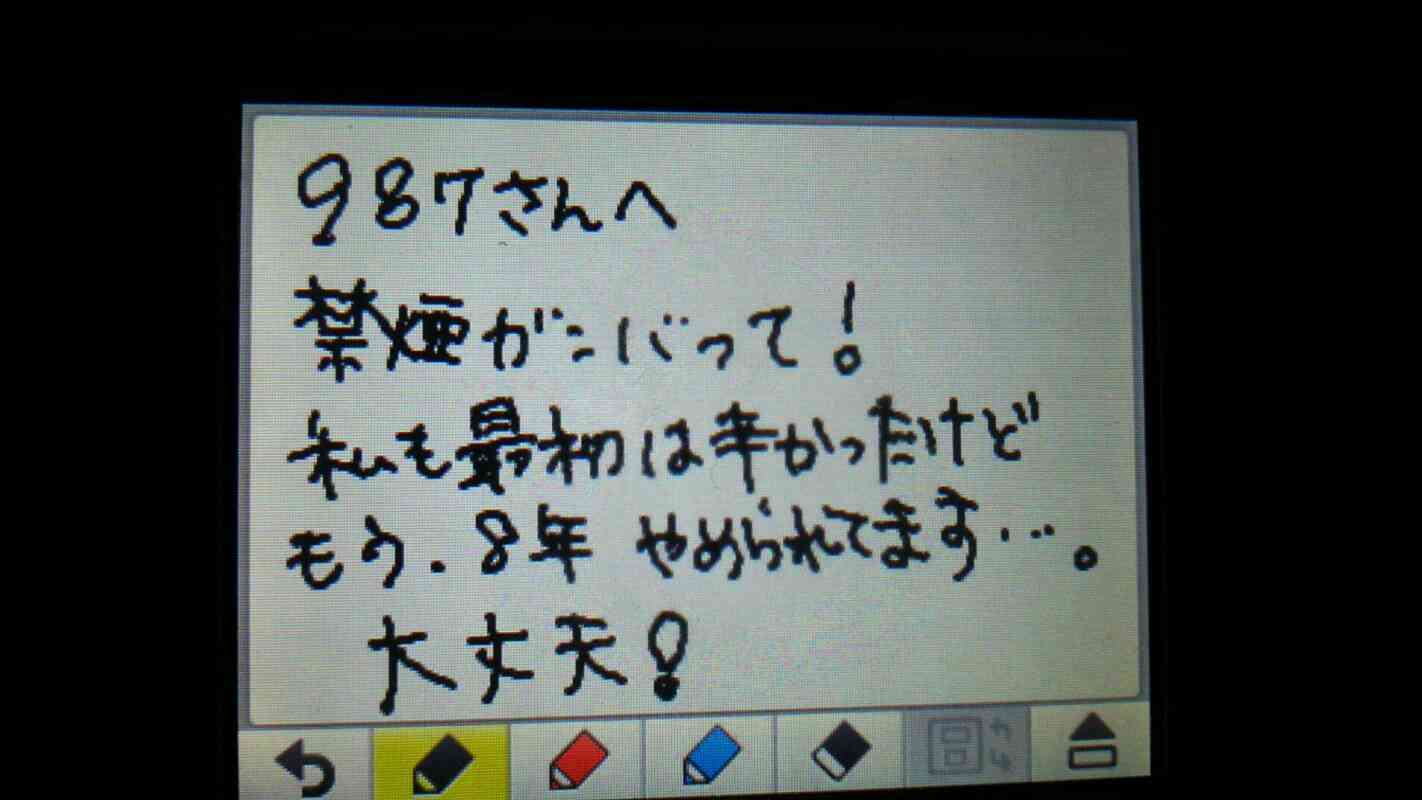 987さんへ
禁煙がこバって!
私も最初は辛かっただけど
もう.8年 やめられてます…。
大丈夫!